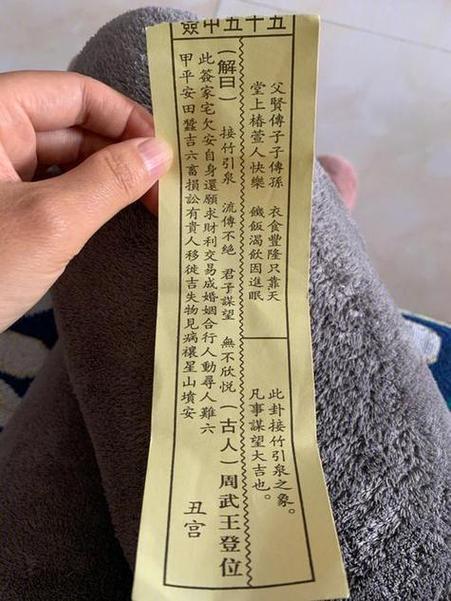 五十五中簽
父賢傳子子傳孫 衣食豐隆只靠天
堂上椿萱人快樂 饑飯渴飲因進眠
此卦接竹引泉之象。
凡事謀望大吉也。
(解曰) 接竹引泉 流傳不絕 君子謀望 無不欣悅 (古人) 周武王登位
此簽家宅欠安自身還願求財利交易成婚姻合行人動尋人難六
甲平安田蠶吉六畜損訟有貴人移徙吉失物見病禳星山墳安 丑宮